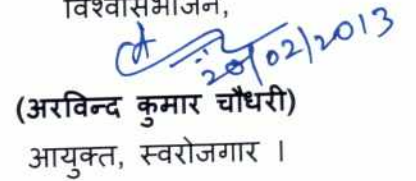 विश्वासभाजन,
20/02/2013
(अरविन्द कुमार चौधरी)
आयुक्त, स्वरोजगार ।